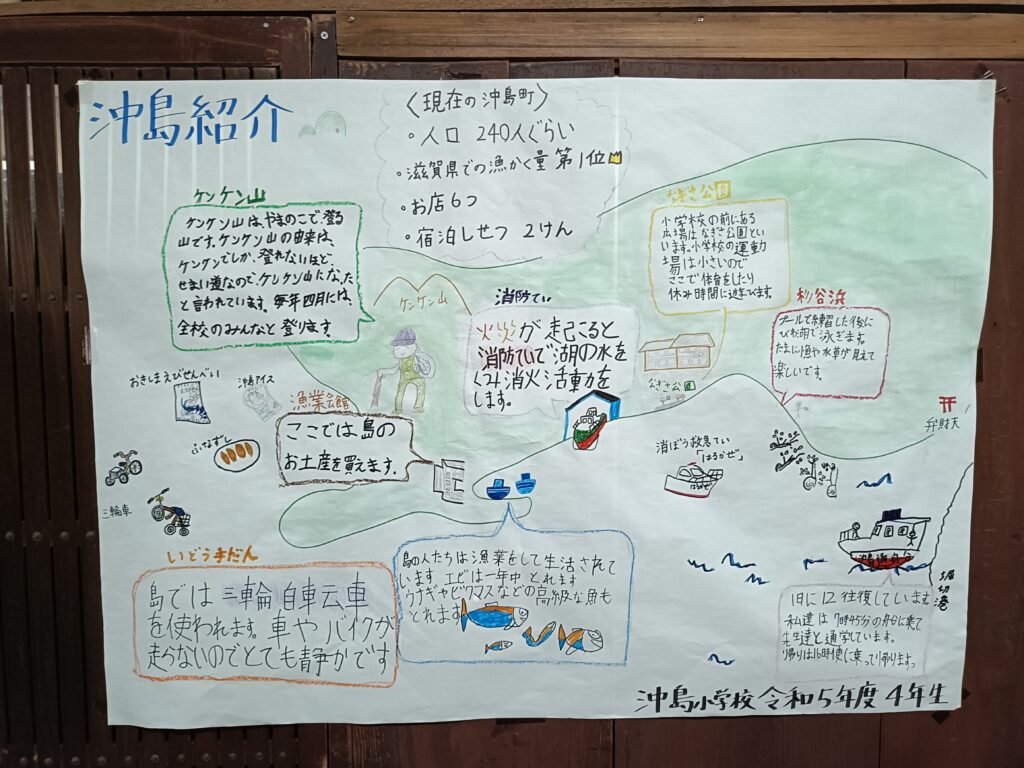 沖島紹介
〈現在の沖島町〉
・人口 240人ぐらい
・滋賀県での漁かく量 第1位
・お店6つ
・宿泊しせつ 2けん
ケンケン山
ケンケン山は、やまのこで、登る
山です。ケンケン山の由来は、
ケンケンでしか、登れないほど、
せまい道なので、ケンケン山になった
と言われています。毎年四月には、
全校のみんなと登ります。
ケンケン山
なぎさ公園
小学校の前にある
広場はなぎさ公園とい
います。小学校の運動
場は小さいので
ここで体育をしたり
休み時間に遊びます。
なぎさ公園
消防てい
火災が起こると
消防ていで湖の水を
くみ消火活動を
します。
杉谷浜
プールで練習した後に
びわ湖で泳ぎます。
たまに魚や水草が見えて
楽しいです。
弁財天
おきしまえびせんべい
沖島アイス
ふなずし
漁業会館
ここでは島の
お土産を買えます。
消ぼう救急てい
「はるかぜ」
はるかぜ
三輪車
いどうしゅだん
島では三輪自転車
を使われます。車やバイクが
走らないのでとても静かです
島の人たちは漁業をして生活されて
います。エビは一年中とれます
ウナギやビワマスなどの高級な魚も
とれます
堀切港
1日に12往復しています。
私達は7時45分の船に乗て
先生達と通学しています。
帰りは16時便に乗って帰ります。
沖島小学校 令和5年度 4年生